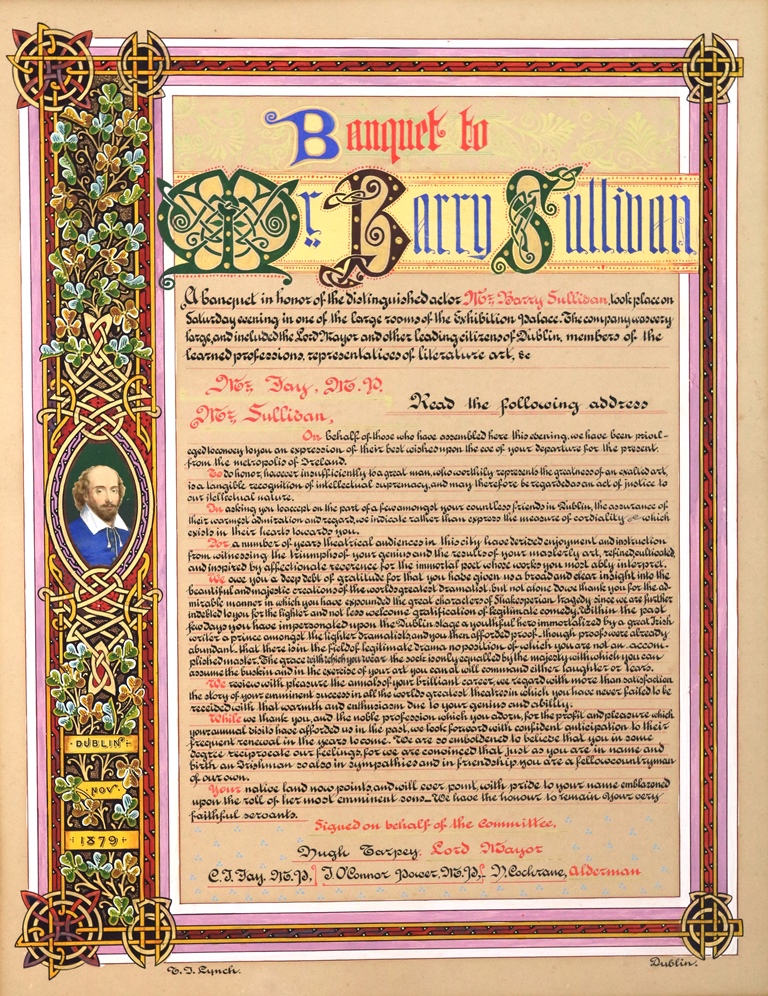 Banquet to
Mr. Barry Sullivan
A banquet in honor of the distinguished actor Mr. Barry Sullivan, took place on
Saturday evening in one of the large rooms of the Exhibition Palace. The company was very
large, and included the Lord Mayor and other leading citizens of Dublin, members of the
learned professions, representatives of literature art, &c
Mr. Fay, M.P.
Read the following address
Mr. Sullivan,
On behalf of those who have assembled here this evening, we have been privil-
eged to convey to you an expression of their best wishes upon the eve of your departure for the present
from the metropolis of Ireland.
To do honor, however insufficiently to a great man, who worthily represents the greatness of an exalted art,
is a tangible recognition of intellectual supremacy, and may therefore be regarded as an act of justice to
our itellectual nature.
In asking you to accept on the part of a few amongst your countless friends in Dublin, the assurance of
their warmest admiration and regard, we indicate rather than express the measure of cordiality which
exists in their hearts towards you.
For a number of years theatrical audiences in this city have derived enjoyment and instruction
from witnessing the triumphs of your genius and the results of your masterly art, refined cultivated,
and inspired by affectionate reverence for the immortal poet whose works you most ably interpret.
We owe you a deep debt of gratitude for that you have given us a broad and clear insight into the
beautiful and majestic creations of the worlds greatest dramatist, but not alone do we thank you for the ad-
mirable manner in which you have expounded the great characters of Shakesperian tragedy since we are further
indebted to you for the lighter and not less welcome gratification of legitimate comedy. Within the past
few days you have impersonated upon the Dublin stage a youthful hero immortalized by a great Irish
writer a prince amongst the lighter dramatists, and you then afforded proof—though proofs were already
abundant—that there is in the field of legitimate drama no position of which you are not an accom-
plished master. The grace with which you wear the sock is only equalled by the majesty with which you can
assume the buskin and in the exercise of your art you can at will command either laughter or tears.
We review with pleasure the annals of your brilliant career, we regard with more than satisfaction
the story of your emminent success in all the worlds greatest theatres in which you have never failed to be
received with that warmth and enthusiasm due to your genius and ability.
While we thank you, and the noble profession which you adorn, for the profit and pleasure which
your annual visits have afforded us in the past, we look forward with confident anticipation to their
frequent renewal in the years to come. We are so emboldened to believe that you in some
degree reciprocate our feelings, for we are convinced that just as you are in name and
birth an Irishman so also in sympathies and in friendship you are a fellow countryman
of our own.
Your native land now points, and will ever point, with pride to your name emblazoned
upon the roll of her most emminent sons—We have the honour to remain Your very
faithful servants.
Signed on behalf of the Committee.
Hugh Tarpey. Lord Mayor
C. J. Fay. M.P., J. O'Connor Power, M.P., Cochrane, Alderman
DUBLIN
NOV.
1879
T. J. Lynch.
Dublin.